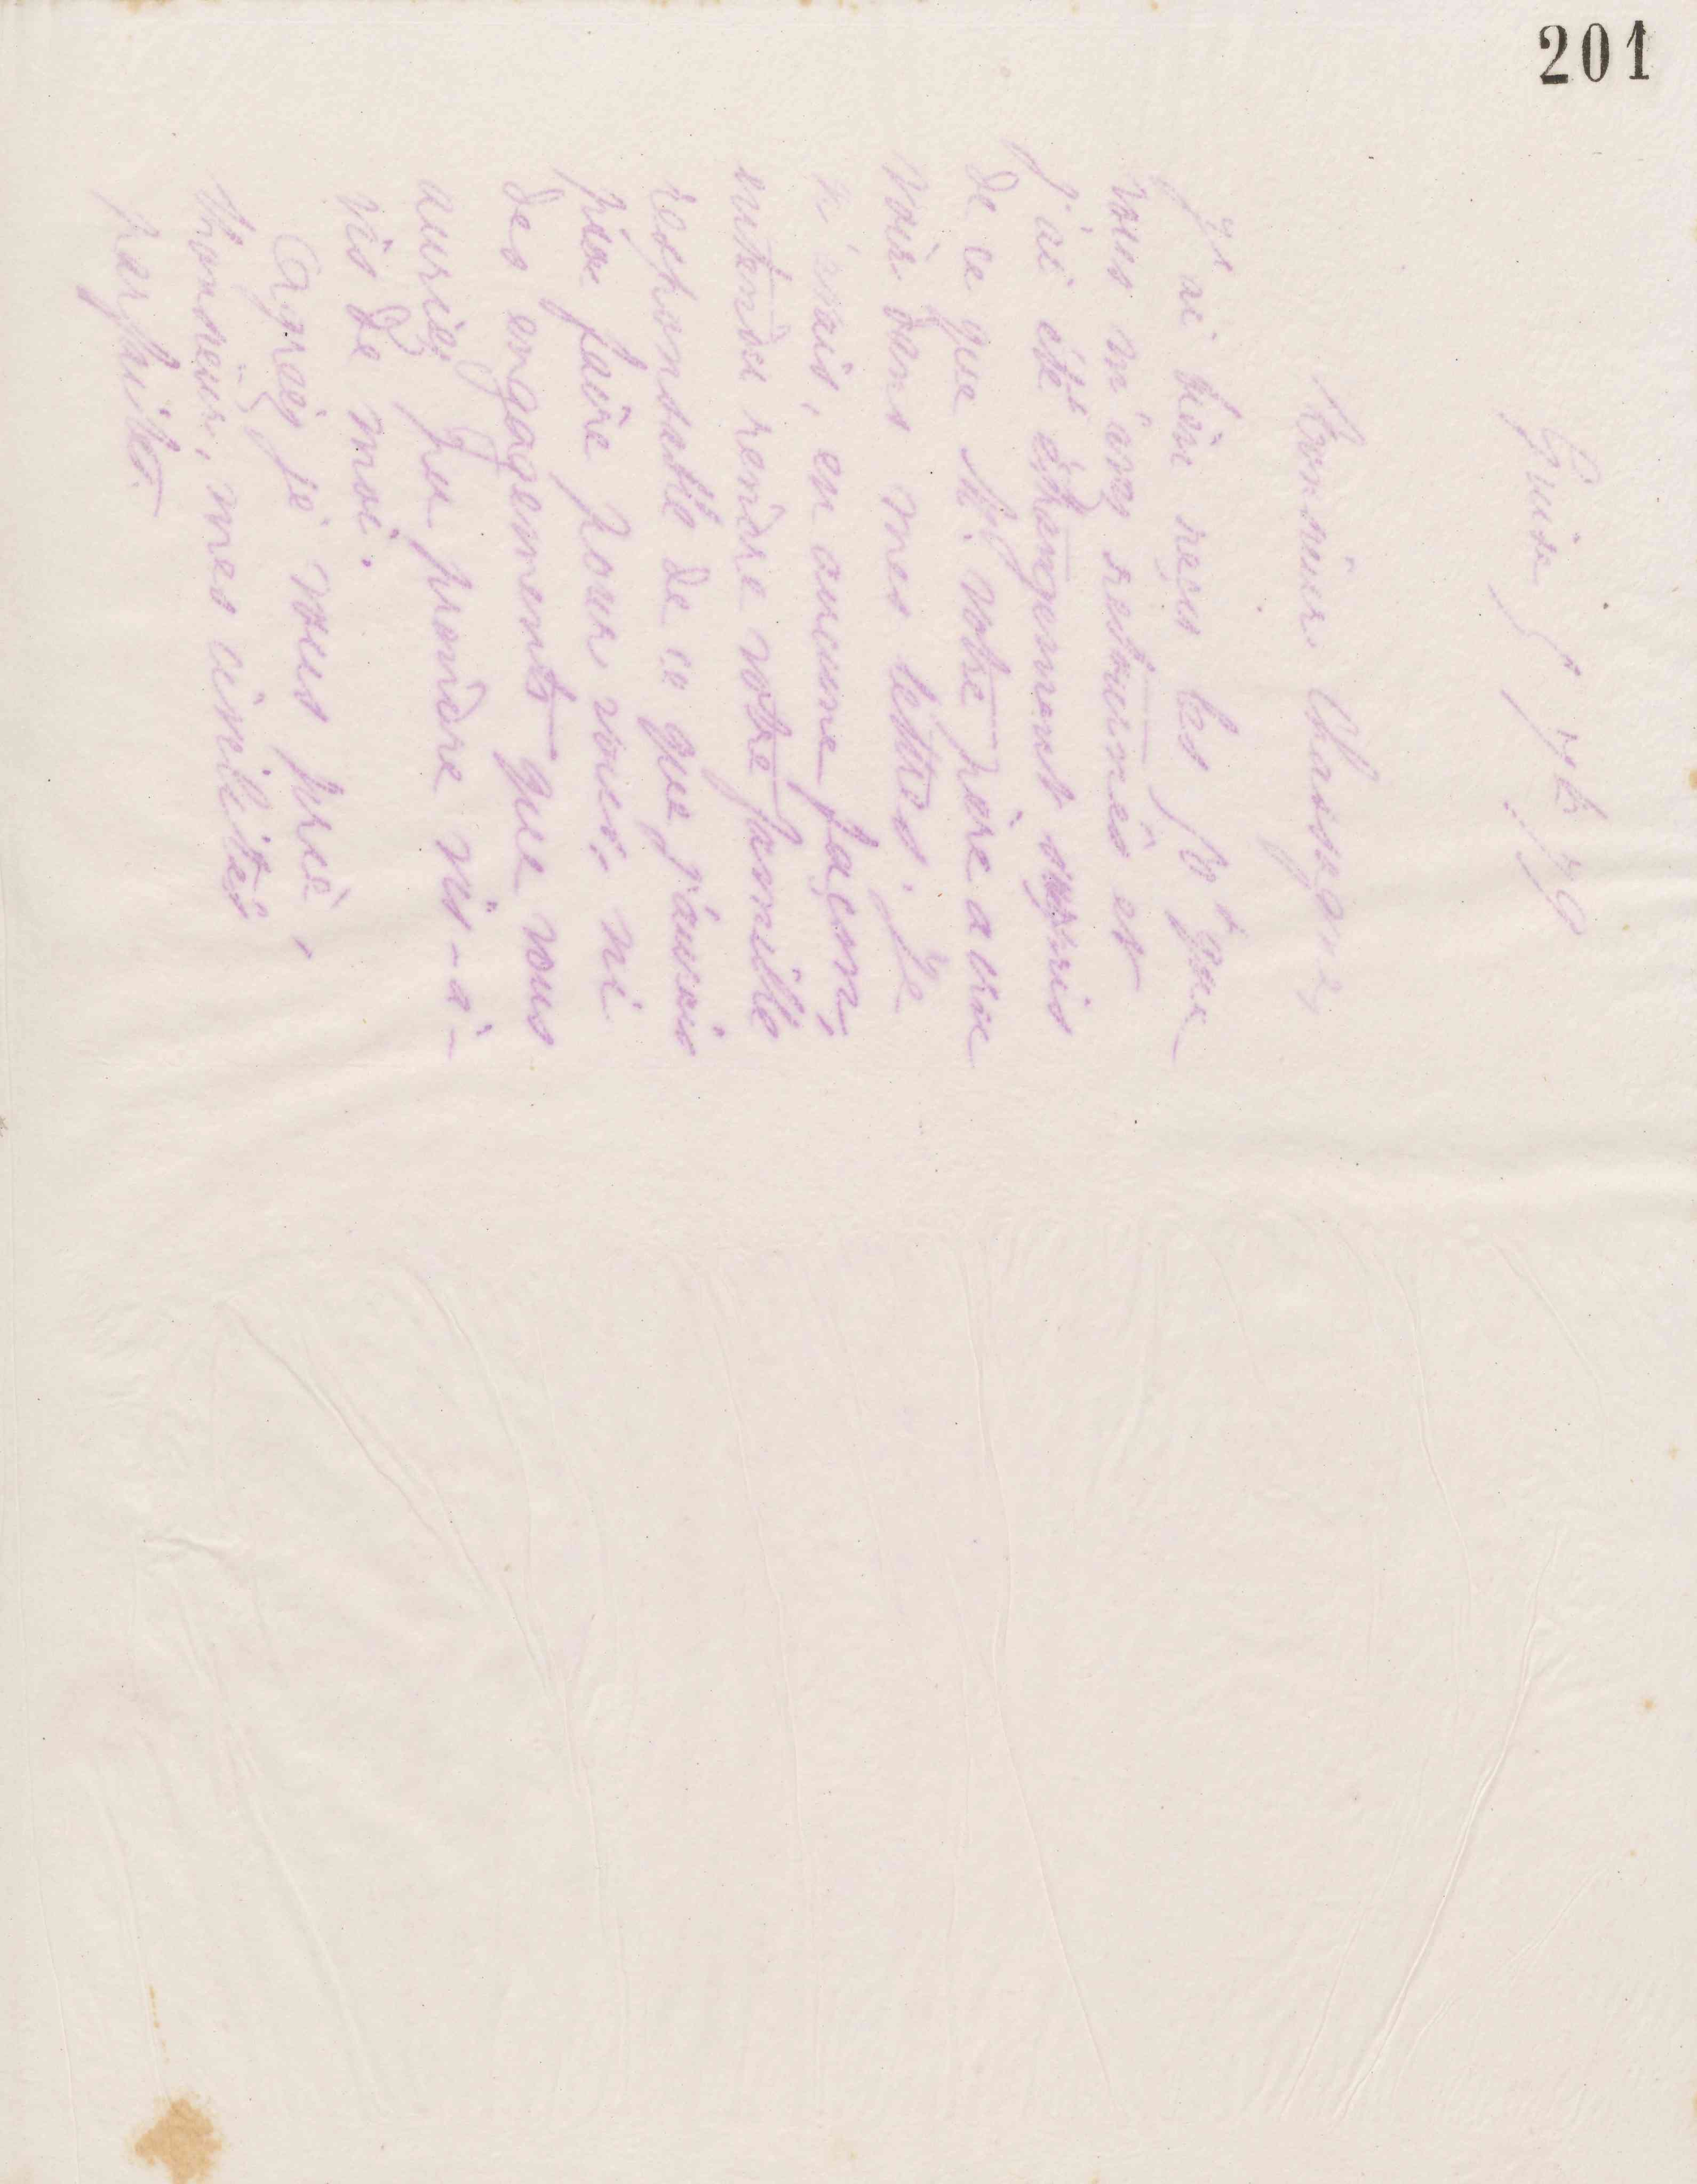 201
Guise 5 7bre 79
Monsieur Chassagne,
J'ai bien reçu les 50f que
vous m'avez retournés et
j'ai été étrangement surpris
de ce que M. votre père a cru
voir dans mes lettres. Je
n'avais, en aucune façon,
entendu rendre votre famille
responsable de ce que j'avais
pu faire pour vous, ni
des engagements que vous
auriez pu prendre vis-à-
vis de moi.
Agréez je vous prie,
Monsieur, mes civilités
parfaites.